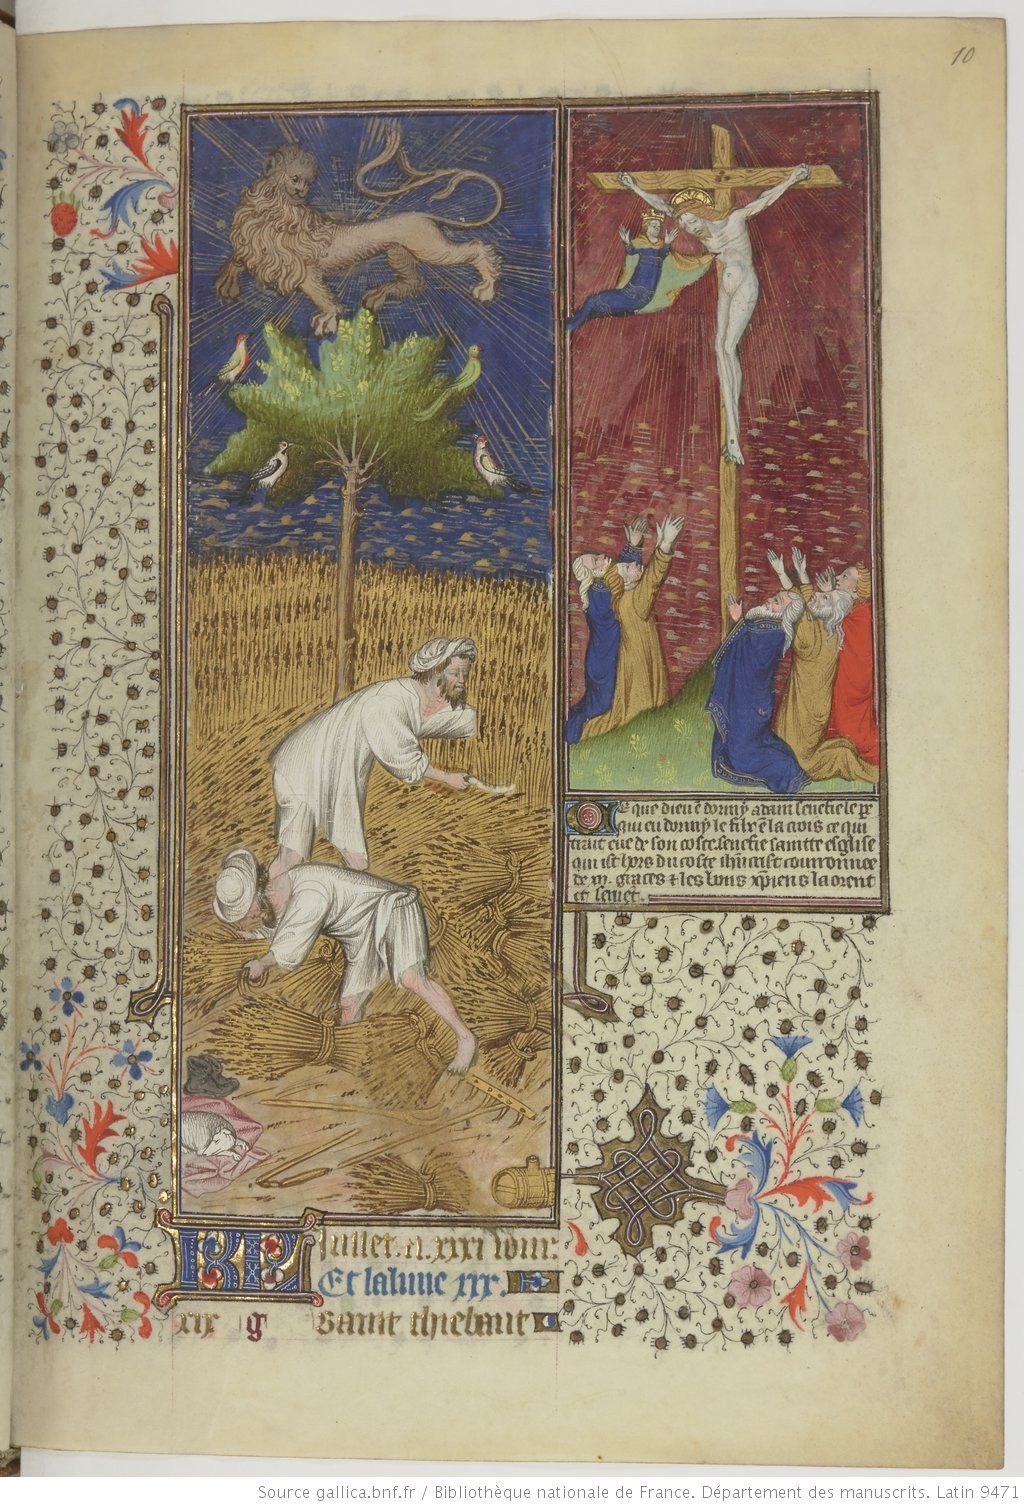 10
Ce que dieu ē dormy adam senefie le pe
qui eu dormy le filx ē la crois ce qui
trait eve de son coste. senefie saintte esglise
qui ist hors du coste ihūcrist couronnee
de vii. graces & les bons xp̄iens laorent
et servēt.
KL Juillet. a. xxxi iour.
Et la lune xxx.
xix g Saint thiebaut
Source gallica.bnf.fr / Bibliothèque nationale de France. Département des manuscrits. Latin 9471